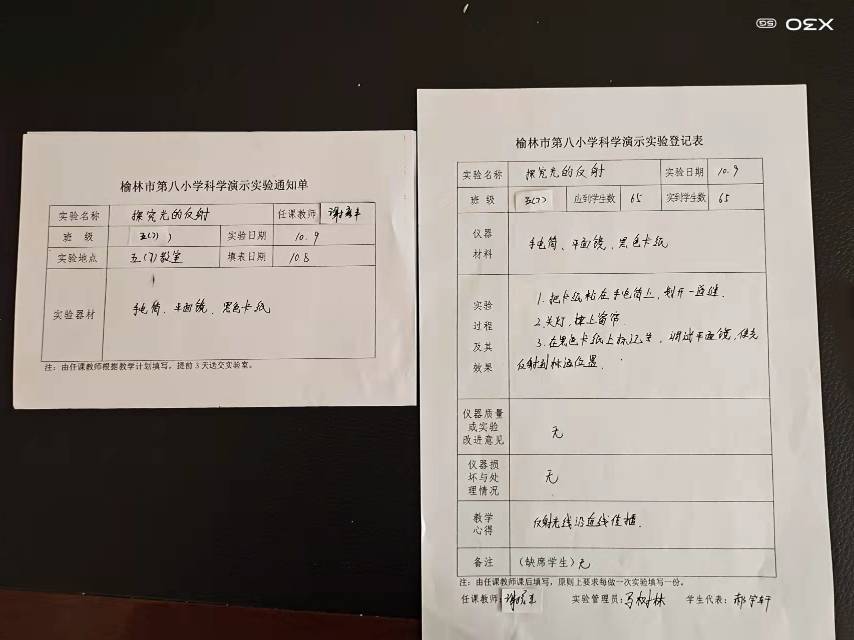 X30
5G
榆林市第八小学科学演示实验通知单
实验名称 探究光的反射 任课教师
班 级 五(7) 实验日期 10.9
实验地点 五(7)教室 填表日期 10.8
实验器材 手电筒、平面镜、黑色卡纸
注:由任课教师根据教学计划填写,提前3天送交实验室。
榆林市第八小学科学演示实验登记表
实验名称 探究光的反射 实验日期 10.9
班 级 五(7) 应到学生数 65 实到学生数 65
仪器材料 手电筒、平面镜、黑色卡纸
实验过程及其效果
1.把卡纸粘在手电筒上,划开一道缝.
2.关灯,拉上窗帘.
3.在黑色卡纸上标记,调试平面镜,使光
反射到标记位置.
仪器质量或实验改进意见 无
仪器损坏与处理情况 无
教学心得 反射光线沿直线传播.
备注 (缺席学生)无
注:由任课教师课后填写,原则上要求每做一次实验填写一份。
任课教师: 实验管理员:马树林 学生代表:郝宇轩